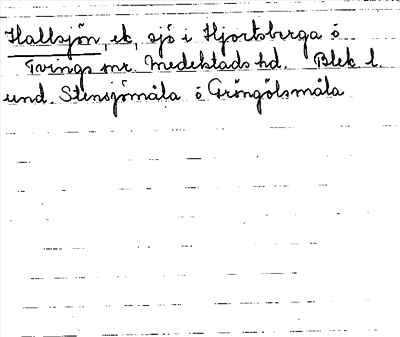 Hallsjön, ek, sjö i Hjortsberga o
Tvings snr. Medelstads hd. Blek. l.
und. Stensjömåla o Gröngölsmåla